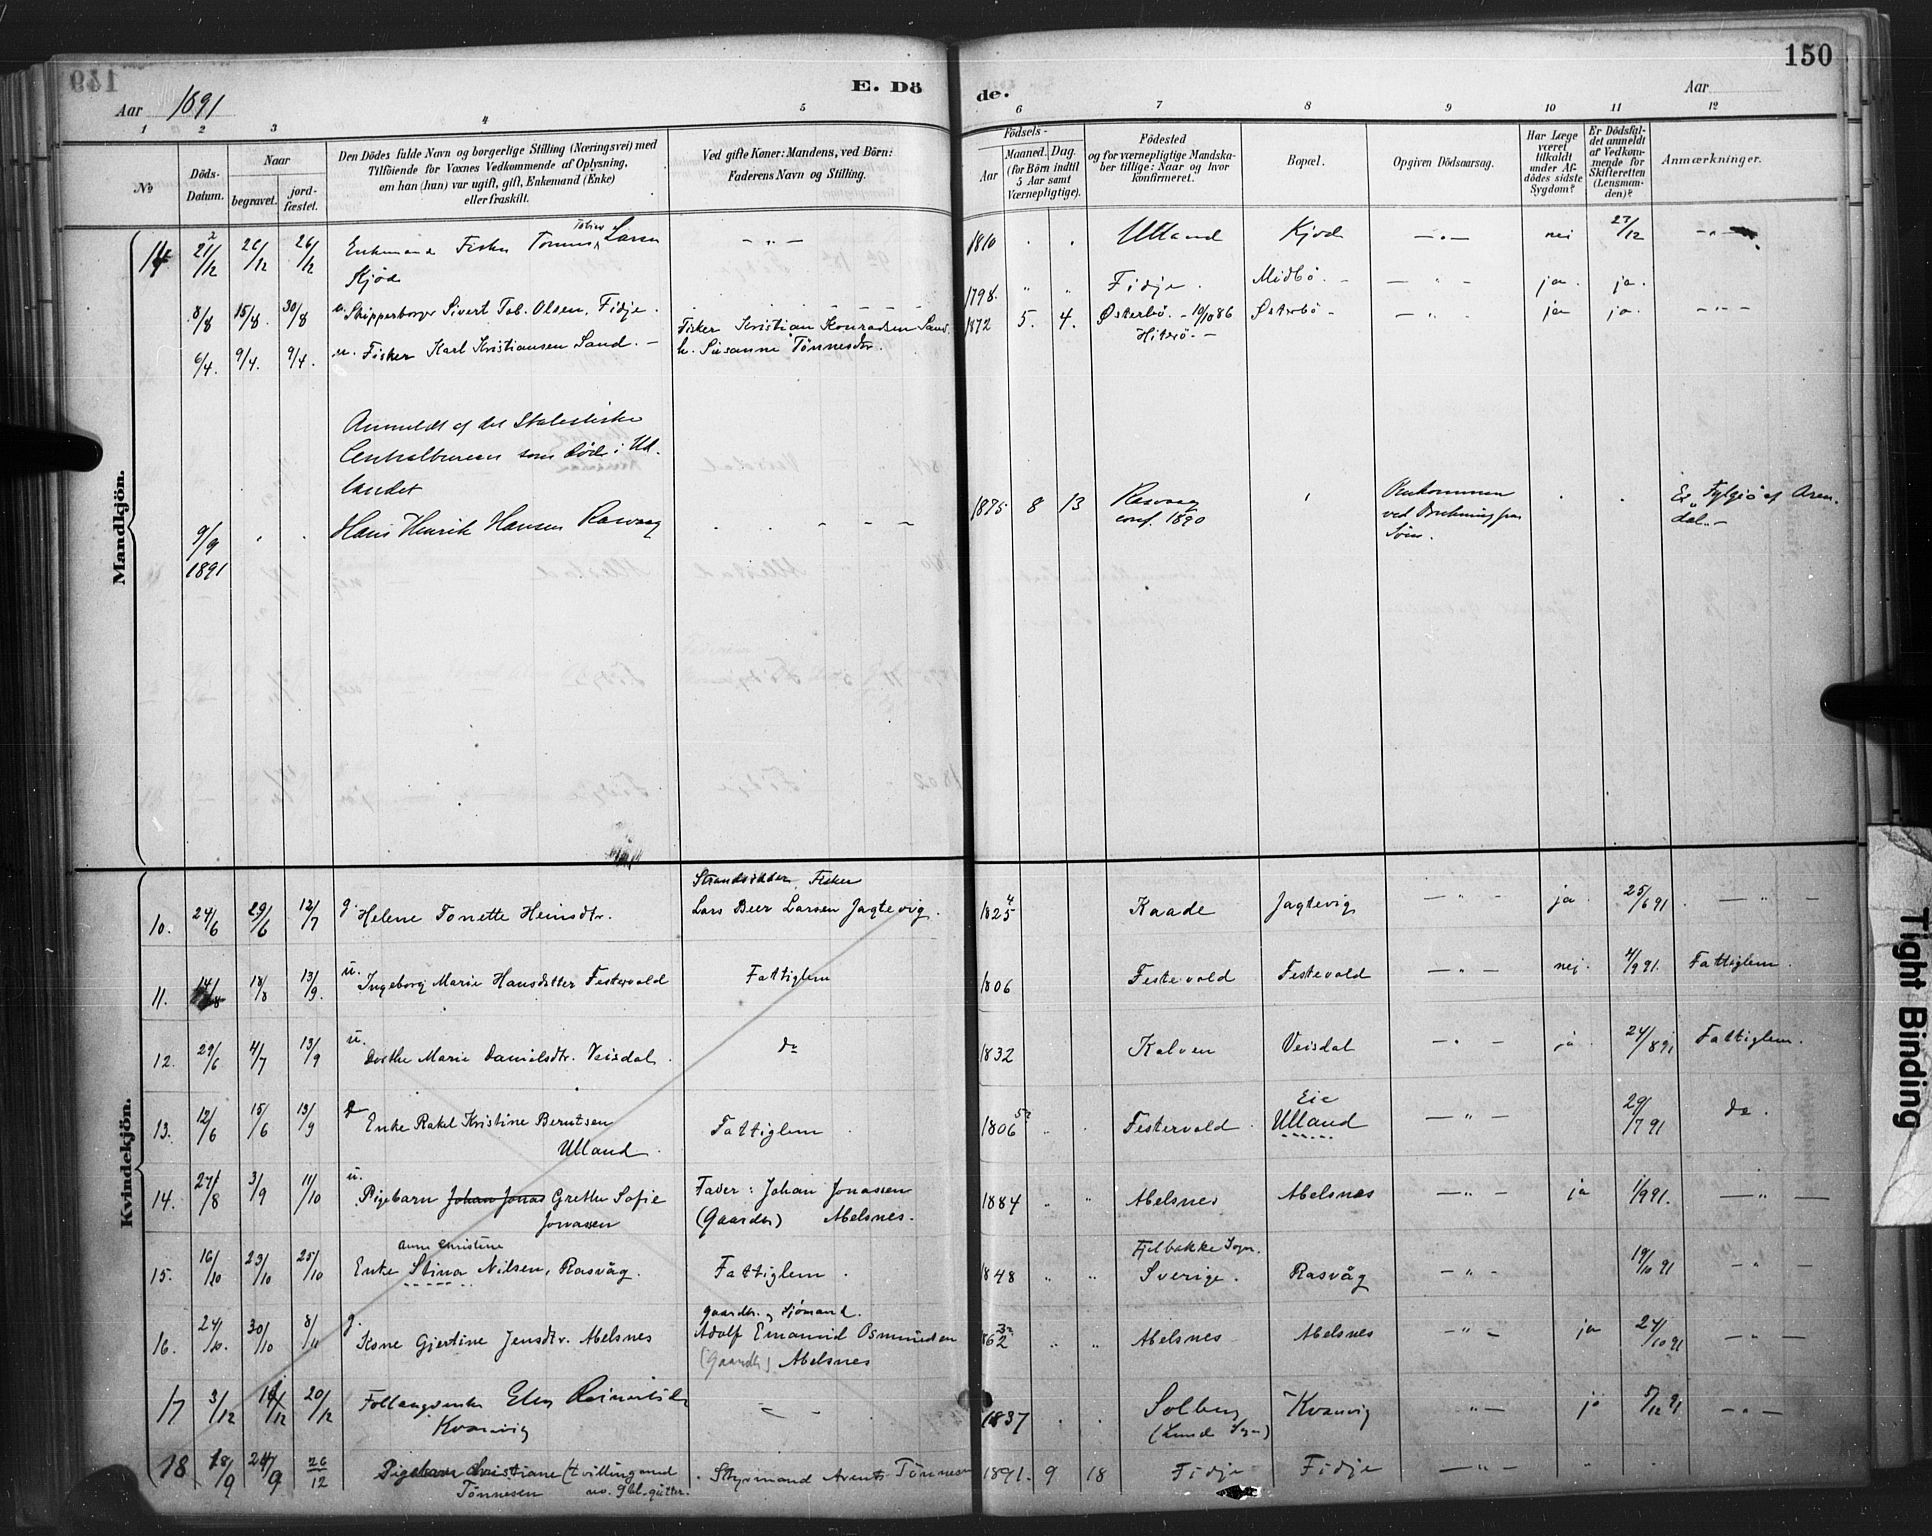 149
150
E. Dö
de.
Aar 1891
Aar
1 2 3 4 5 6 7 8 9 10 11 12
No
Döds-Datum.
Naar
begravet.
jord-fæstet.
Den Dödes fulde Navn og borgerlige Stilling (Næringsvei) med
Tilföiende for Voxnes Vedkommende af Oplysning,
om han (hun) var ugift, gift, Enkemand (Enke)
eller fraskilt.
Ved gifte Koner: Mandens, ved Börn:
Faderens Navn og Stilling.
Födsels-
Aar
Maaned. Dag.
(for Börn indtil
5 Aar samt
Værnepligtige).
Födested
og for værnepligtige Mandska-
ber tillige: Naar og hvor
konfirmeret.
Bopæl.
Opgiven Dödsaarsag.
Har Læge
været
tilkaldt
under Af-
dödes sidste
Sygdom?
Er Dödsfal-
det anmeldt
af Vedkom-
mende for
Skifteretten
(Lensman-
den)?
Anmærkninger.
Mandkjön.
14 21/12 26/12 Enkemand Fisker Tönnes Tobias Larsen - „ - 1810 Ulland Kjød - „ - nei 23/12
Kjöd
8/8 15/8. 30/8 Skipperborger Sivert Tob. Olsen, Fidje. 1798. Fidje. Midbö. ja. ja.
6/4. 9/4. 9/4. u. Fisker Karl Kristiansen Sand. Fisker Kristian Konradsen Sand. 1872 5. 4. Østerbö. - 10/10 86 Østerbö ja ja.
h. Susanne Tönnesdtr. Hiterö.
Anmeldt af det Statistiske
Centralbureau som død i Ud-
landet
9/9 1891 Hans Henrik Hansen Rasvaag 1875 8 13 Rasvaag Omkommen Ex. Fylgiö af Aren-
conf. 1890 ved Drukning fra dal.
Kvindekjön.
Strandsidder, Fisker
10. 24/6 29/6 12/7 g. Helene Tonette Heinsdtr. Lars Beer Larsen Jagtevig. 1825 Kaade Jagtevig ja 25/6 91.
11. 14/8 18/8 13/9. u. Ingeborg Marie Hansdatter Festervold Fattiglem 1806 Festevold Festevold nej. 4/9 91. Fattiglem.
12. 29/6 4/7 13/9 u. Dorthe Marie Danielsdtr. Veisdal. do 1832 Kalven Veisdal ja 24/8 91 Fattiglem.
13. 12/6 15/6 13/9 Enke Rakel Kristine Berntsen Fattiglem. 1806 Festervold. Eie Ulland 29/7 91 do.
Ulland.
14. 27/8 3/9 11/10 u. Pigebarn Johan Jonas Grethe Sofie Fader: Johan Jonassen 1884 Abelsnes Abelsnes ja 1/9 91.
Jonassen (Gaardbr) Abelsnes.
Anne Christine
15. 16/10 23/10 25/10 Enke Stina Nilsen, Rasvåg. Fattiglem. 1848 Fjelbakke Sogn. Sverige. Rasvåg 19/10 91
Gaardbr. og Sjömand.
16. 24/10. 30/10 8/11 g. Kone Gjertine Jensdtr. Abelsnes Adolf Emanuel Osmundsen 1862 Abelsnes Abelsnes ja 24/10 91
(Gaardbr) Abelsnes
17 3/12 20/12 Elen 1837 Solberg Kvanvig ja 5/12 91
Kvanvig (Lunde Sogn)
18 18/9 24/9 26/12 Pigebarn Christiane (tvilling Styrmand Arent Tönnesen 1891. 9 18 Fidje Fidje
Tönnesen
Tight Binding